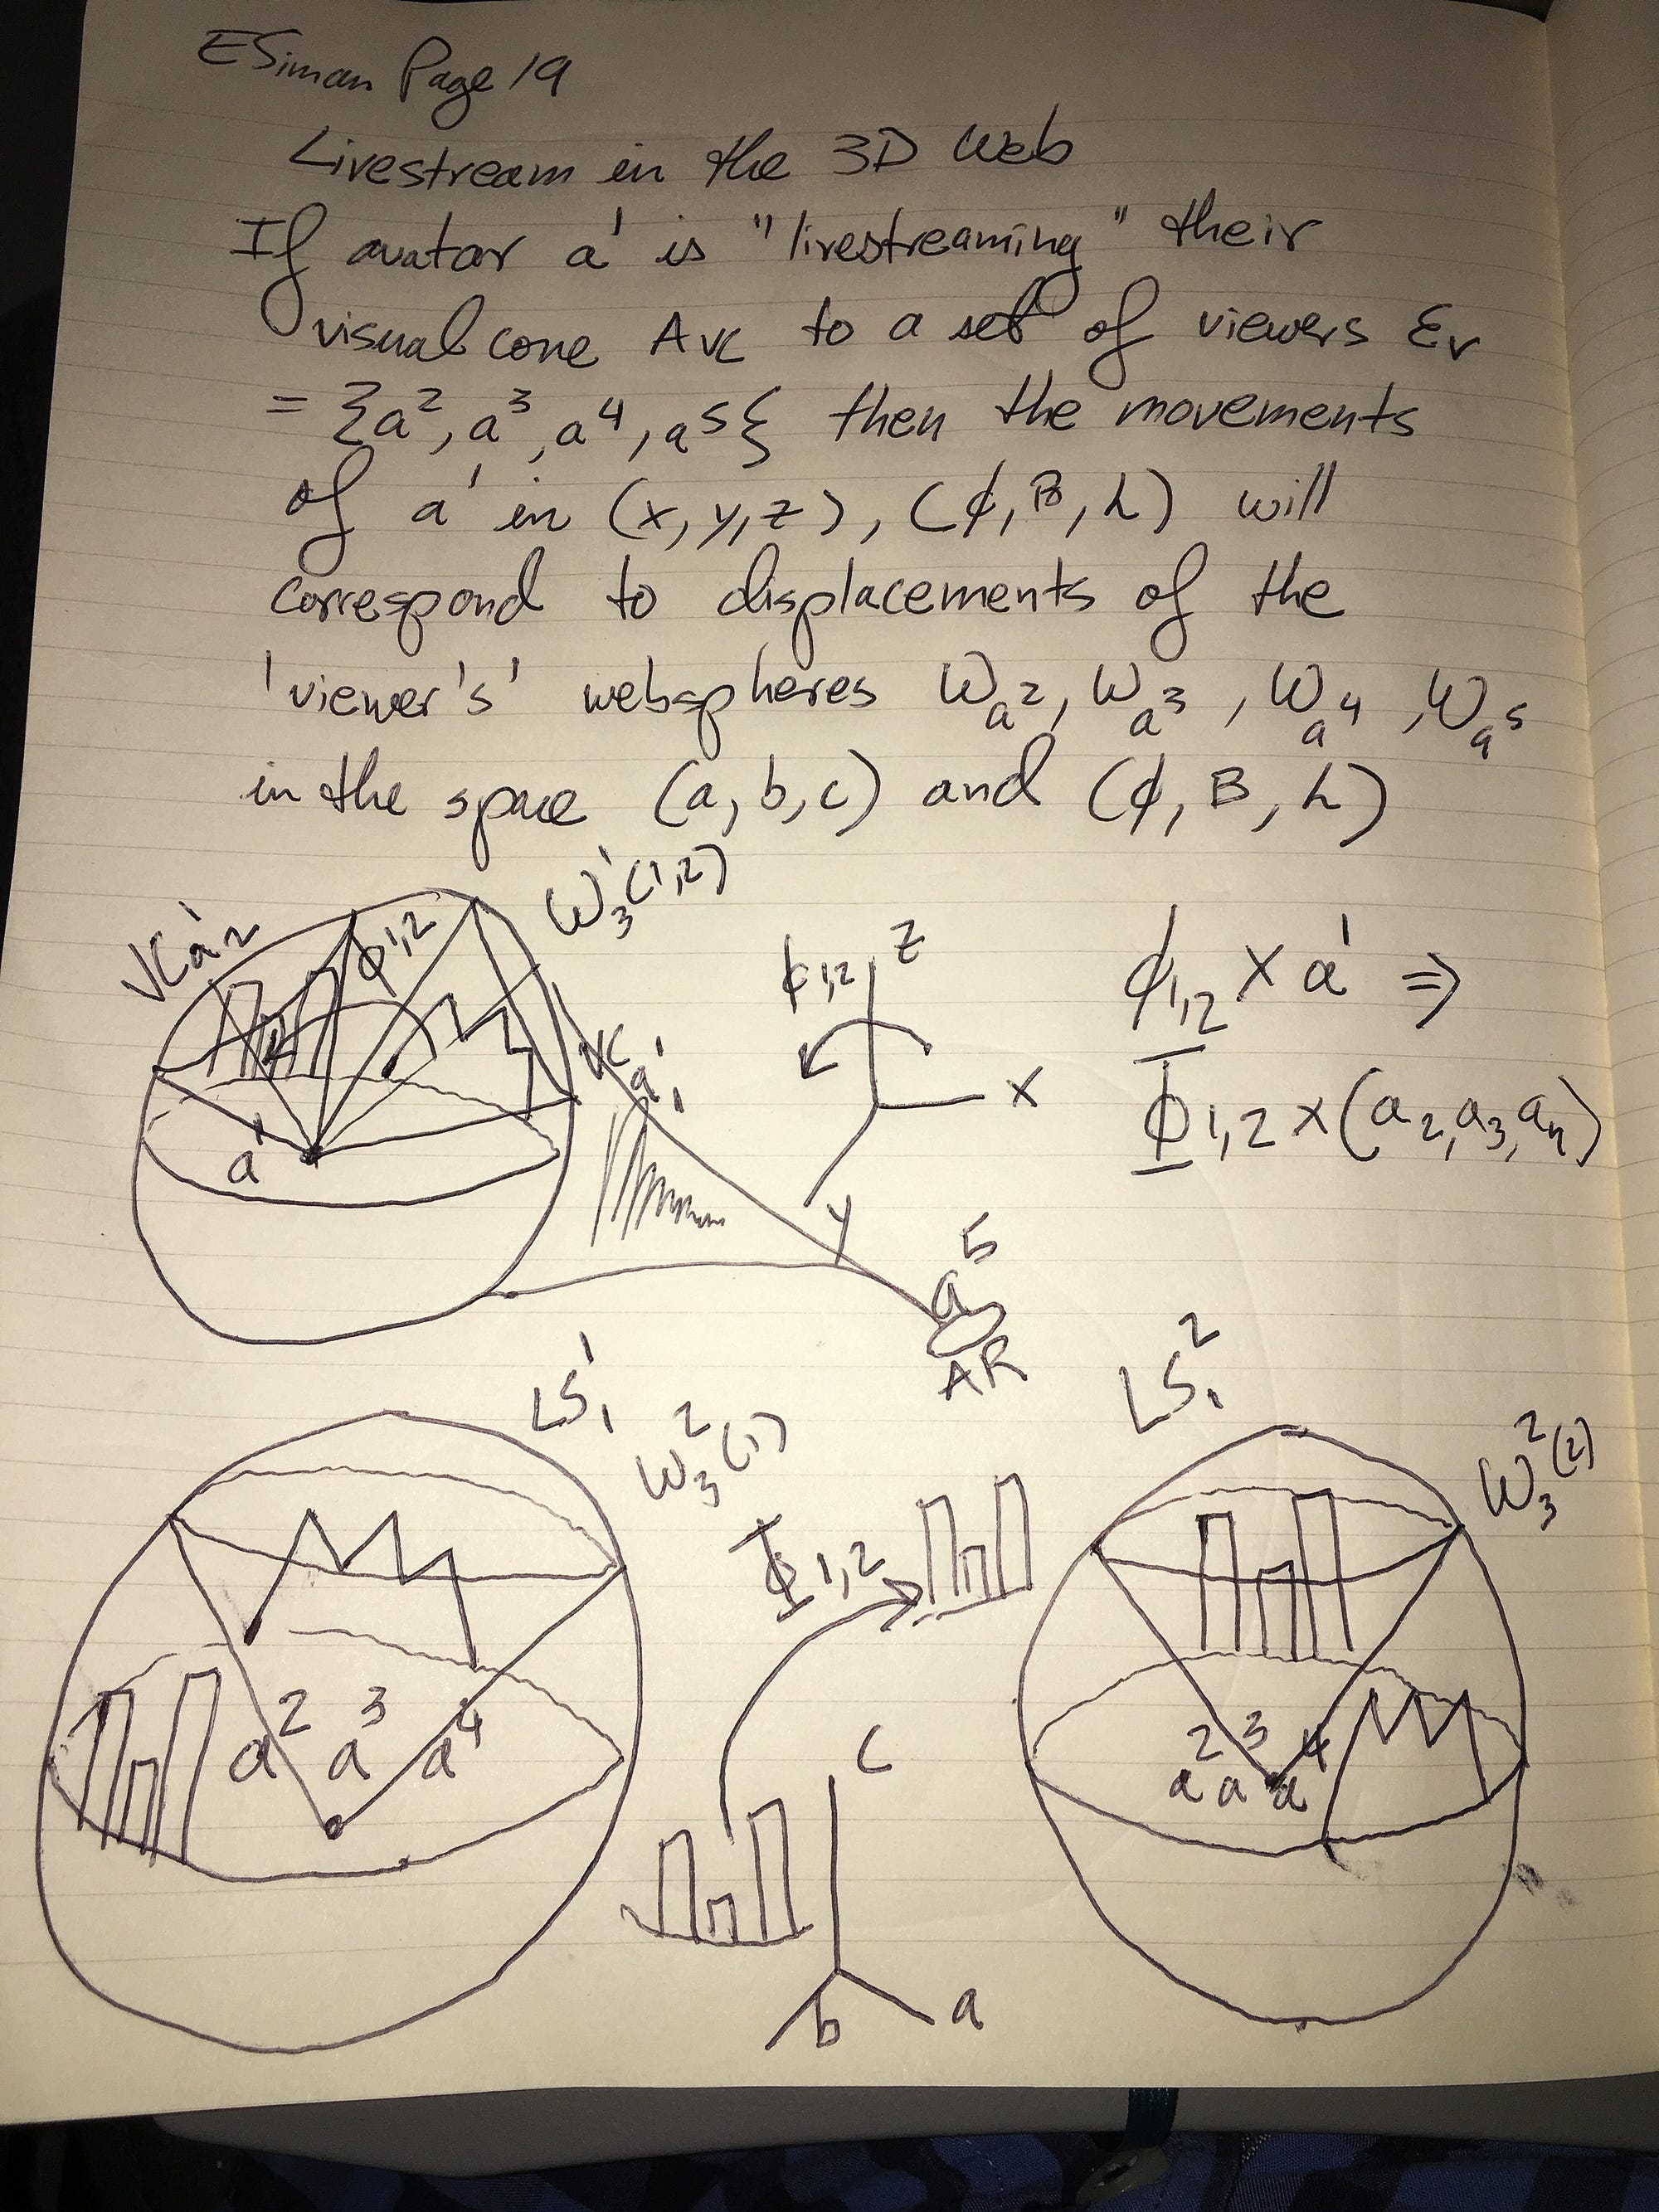 ESiman Page 19
Livestream in the 3D Web
If avatar a¹ is "livestreaming" their
visual cone AVC to a set of viewers Ev
= {a², a³, a⁴, a⁵} then the movements
of a¹ in (x, y, z), (ϕ, B, L) will
correspond to displacements of the
'viewer's' webspheres Wa², Wa³, Wa⁴, Wa⁵
in the space (a, b, c) and (ϕ, B, L)
VCa¹2
ϕ1,2
W¹3(1,2)
VCa¹1
a¹
ϕ1,2
Z
X
Y
ϕ1,2 × a¹ ⇒
Φ1,2 × (a2, a3, an)
a⁵
AR
LS¹1
W²3(1)
LS²1
W²3(2)
Φ1,2
a² a³ a⁴
a² a³ a⁴
c
b
a